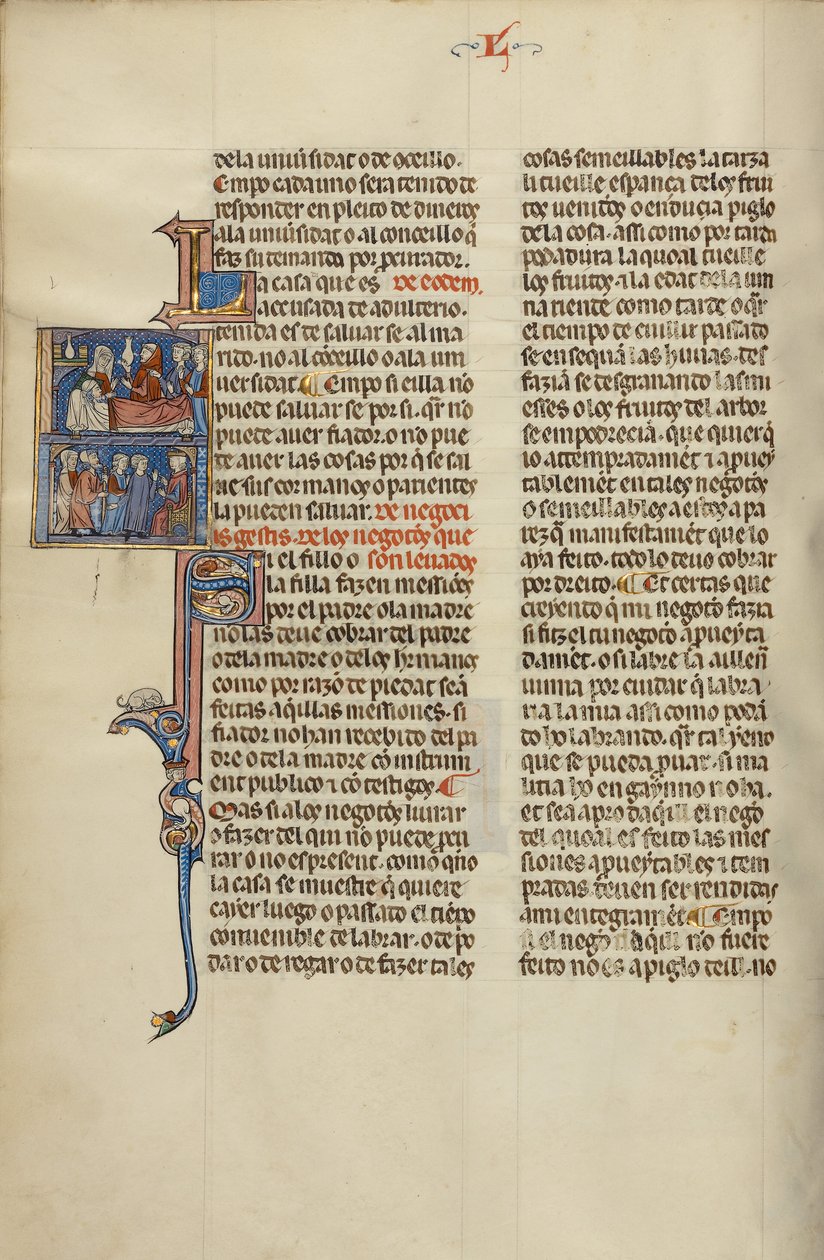 L
dela uniũsidat o de ɔceillo.
Empo cada uno sera tenido de
responder en pleito de dineros
ala uniũsidat o al conceillo q̃
faz su demanda por ꝓcurador.
La casa que es De eodem.
acusada de adulterio.
tenida es de saluar se al ma
rido. no al cõceillo o ala uni
uersidat. ¶ Empo si eilla nõ
puede saluar se por si. qr̃ nõ
puede auer fiador. o nõ pue
de auer las cosas por q̃ se sal
ue sus cormanos o parientes
la pueden saluar. De negoci
is gestis. De los negotios que
Si el fillo o son leuados
la filla fazen messiões
por el padre o la madre
no las deue cobrar del padre
o dela madre o delos hr̃manos
como por razõ de piedat seã
feitas aq̃illas messiones. si
fiador no han recebido del pa
dre o dela madre cõ instrum
ent publico ⁊ cõ testigos. ¶
Mas si alos negotios liurar
o fazer del qui nõ puede ꝓcu
rar o no es present. como qño
la casa se muestre q̃ quiere
cayer luego o passado el tiẽpo
conuenible de labrar. o de po
dar o de regar o de fazer tales
cosas semeillables la tarza
li tueille esperança delos frui
tos uenidos o enducia piglo
dela cosa. assi como por tarda
podadura la quoal tueille
los fruitos. ala edat dela uin
na riente como tarde o qr̃
el tiempo de cuillir passado
se en sequã las huuas. des
faziã se desgranando las mi
esses o los fruitos del arbor
se empodreciã. que quier q̃
io attempradamẽt ⁊ aꝓuey
tablemẽt en tales negotios
o semeillables a estos a pa
rezq̃ manifestamẽt que lo
aya feito. todo lo deuo cobrar
por dreito. ¶ Et certas que
creyendo q̃ mi negotio fazia
si fiz el tu negotio aꝓueyta
damẽt. o si labre la aillen
uinna por cuidar q̃ labra
ua la mia assi como podã
do ho labrando. qr̃ tal yeno
que se pueda ꝓuar. si ma
litia ho engaynno no ha.
et sea a pro daq̃ill el nego
del quoal es feito las mes
siones aꝓueytables ⁊ tem
pradas. deuen ser rendidas
ami entegramẽt. ¶ Empo
el nego daq̃ill nõ fuere
feito no es a piglo deill. no